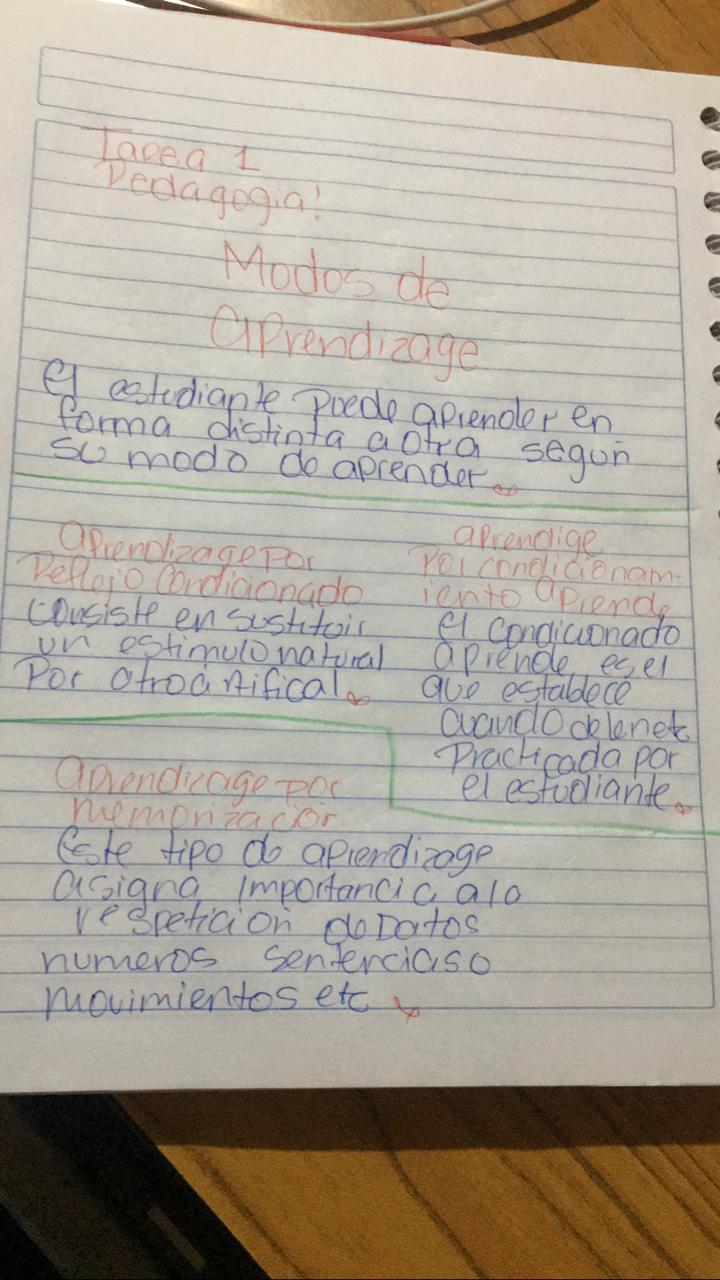 Tarea 1
Pedagogia!
Modos de
aprendizage
el estudiante puede aprender en
forma distinta a otra segun
su modo de aprender.
aprendizage por
Reflejo Condicionado
consiste en sustituir
un estimulo natural
por otro artifical.
aprendige
por condicionam-
iento aprende
el condicionado
aprende es el
que establece
cuando
practicada por
el estudiante.
aprendizage por
memorizacion.
Este tipo de aprendizage
asigna importancia a la
respeticion de Datos
numeros sentencias o
movimientos etc